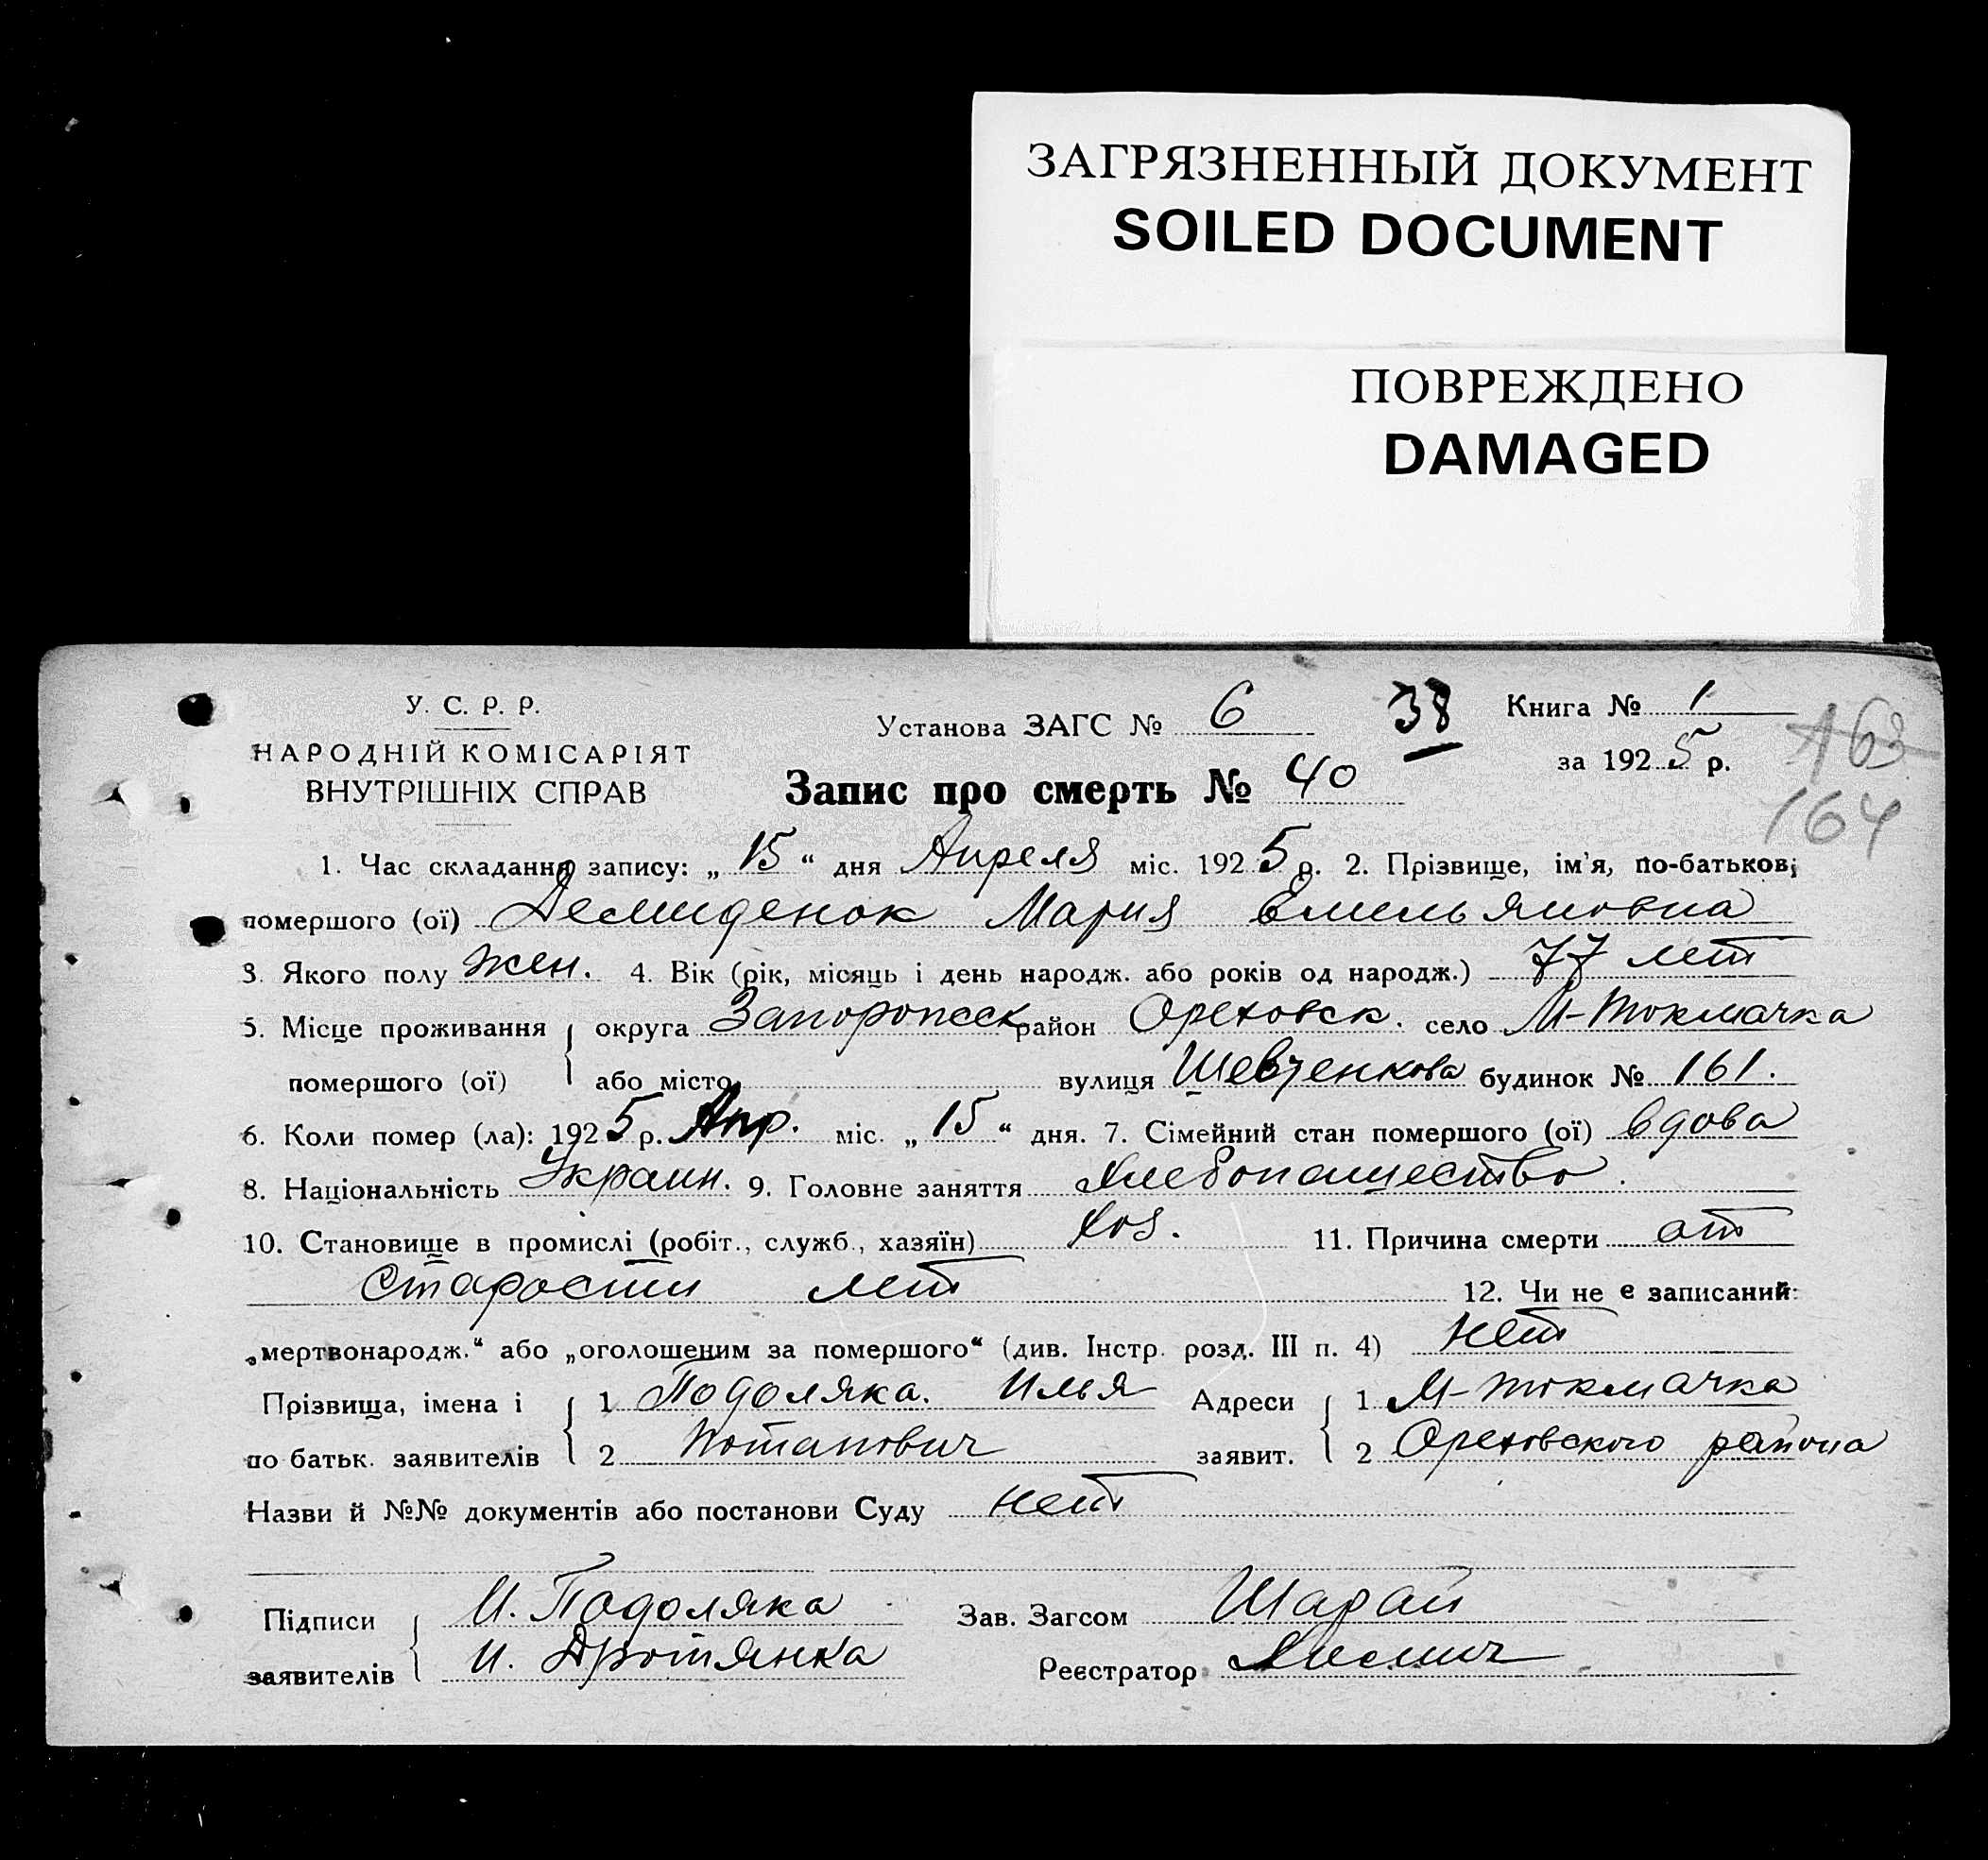 ЗАГРЯЗНЕННЫЙ ДОКУМЕНТ
SOILED DOCUMENT
ПОВРЕЖДЕНО
DAMAGED
У. С. Р. Р.
НАРОДНІЙ КОМІСАРІЯТ
ВНУТРІШНІХ СПРАВ
Установа ЗАГС № 6
38
Книга № 1
за 1925 р.
163
164
Запис про смерть № 40
1. Час складання запису: „15“ дня Апреля міс. 1925 р. 2. Прізвище, ім'я, по-батькові
помершого (ої) Демиденок Мария Емельяновна
3. Якого полу жен. 4. Вік (рік, місяць і день народж. або років од народж.) 77 лет
5. Місце проживання округа Запорожск район Ореховск. село М-Токмачка
помершого (ої) або місто вулиця Шевченкова будинок № 161.
6. Коли помер (ла): 1925 р. Апр. міс. „15“ дня. 7. Сімейний стан помершого (ої) вдова
8. Національність Украин. 9. Головне заняття Хлебопашество.
10. Становище в промислі (робіт., служб., хазяїн) хоз. 11. Причина смерти от
старости лет 12. Чи не є записаний:
„мертвонародж.“ або „оголошеним за помершого“ (див. Інстр. розд. III п. 4) нет
Прізвища, імена і 1 Подоляка. Илья Адреси 1 М-Токмачка
по батьк. заявителів 2 Потапович заявит. 2 Ореховского района
Назви й №№ документів або постанови Суду нет
Підписи И. Подоляка Зав. Загсом Шарай
заявителів И. Дротянка Реєстратор